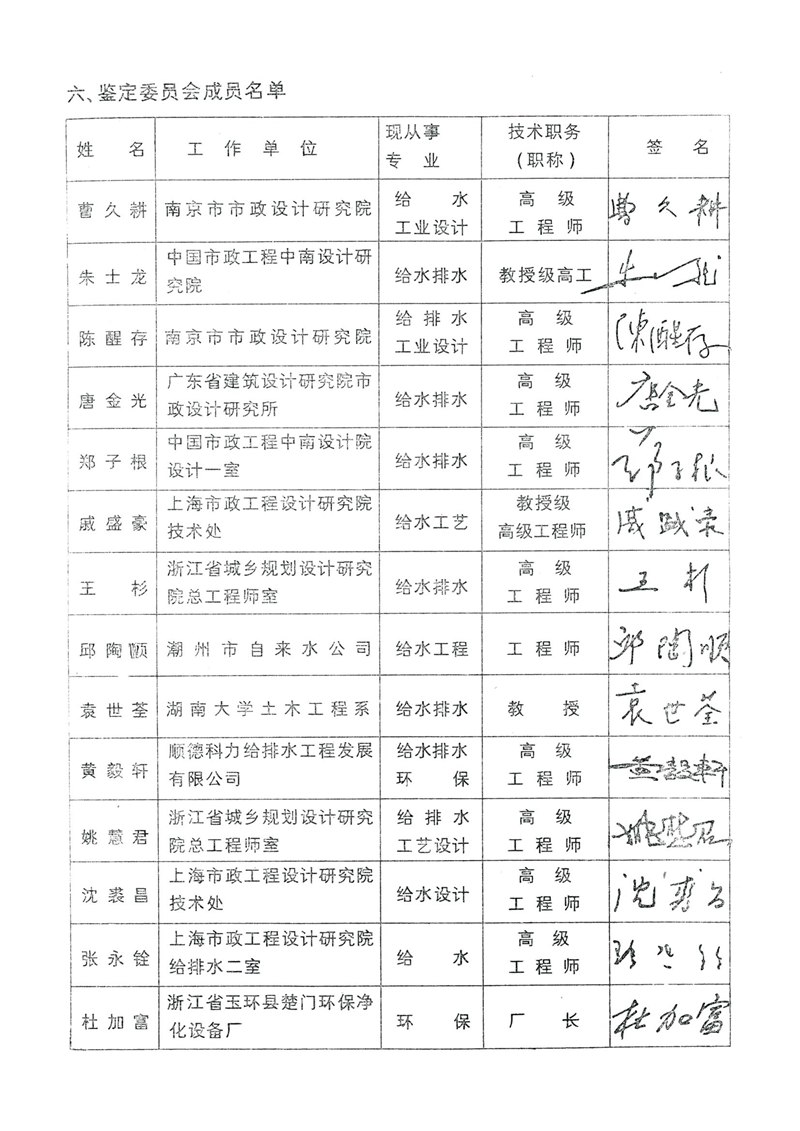 六、鉴定委员会成员名单
姓 名 工作单位 现从事专业 技术职务(职称) 签 名
曹久耕 南京市市政设计研究院 给水工业设计 高级工程师 曹久耕
朱士龙 中国市政工程中南设计研究院 给水排水 教授级高工 朱士龙
陈醒存 南京市市政设计研究院 给排水工业设计 高级工程师 陳醒存
唐金光 广东省建筑设计研究院市政设计研究所 给水排水 高级工程师 唐金光
郑子根 中国市政工程中南设计院设计一室 给水排水 高级工程师
戚盛豪 上海市政工程设计研究院技术处 给水工艺 教授级高级工程师 戚盛豪
王 杉 浙江省城乡规划设计研究院总工程师室 给水排水 高级工程师 王杉
邱陶顺 潮州市自来水公司 给水工程 工程师 邱陶順
袁世荃 湖南大学土木工程系 给水排水 教 授 袁世荃
黄毅轩 顺德科力给排水工程发展有限公司 给水排水环保 高级工程师 黄毅軒
姚慧君 浙江省城乡规划设计研究院总工程师室 给排水工艺设计 高级工程师 姚慧君
沈裘昌 上海市政工程设计研究院技术处 给水设计 高级工程师 沈裘昌
张永铨 上海市政工程设计研究院给排水二室 给 水 高级工程师
杜加富 浙江省玉环县楚门环保净化设备厂 环 保 厂 长 杜加富